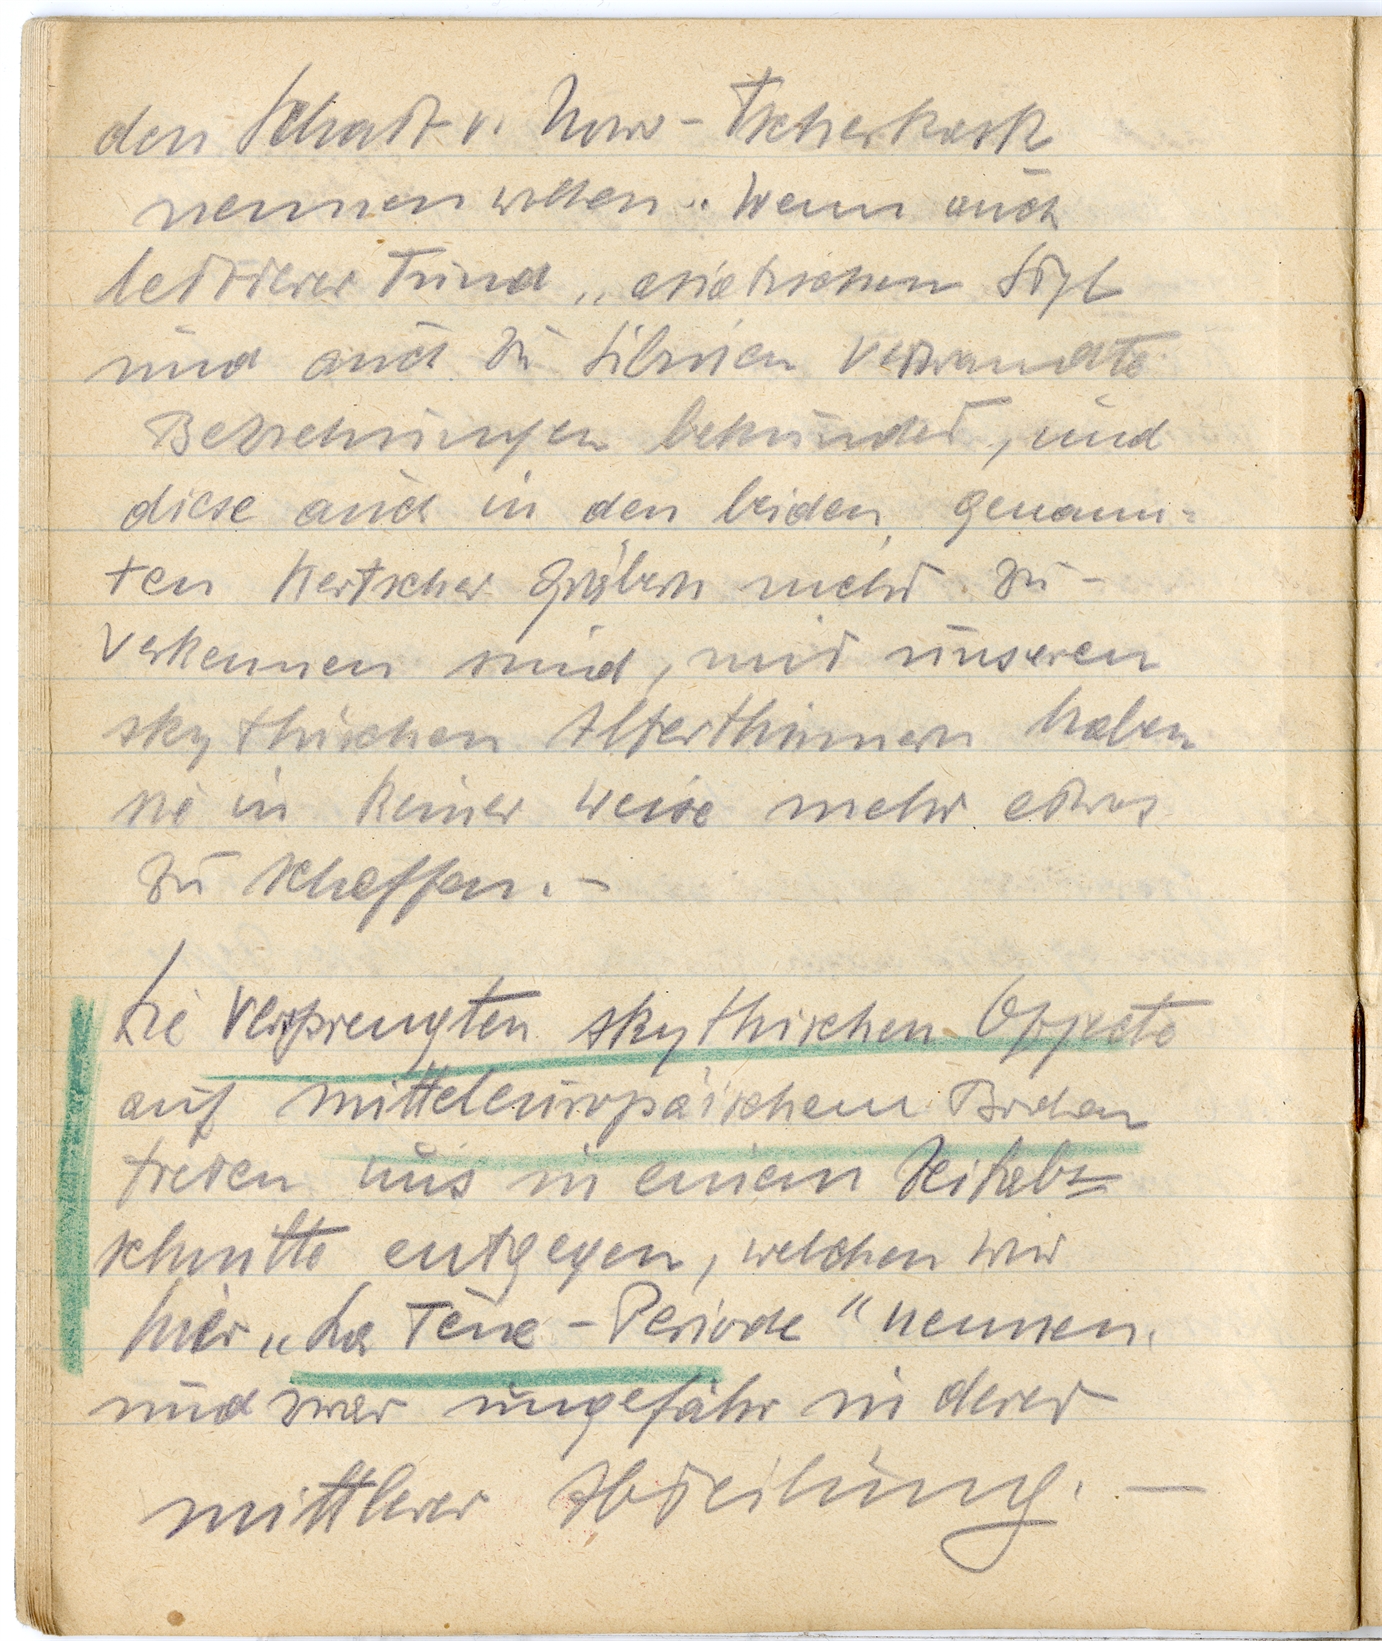 den Schatz v. Nowo-Tscherkask
nennen wollen. Wenn auch
letzterer Fund „asiatischen Styl
und auch zu Sibirien verwandte
Beziehungen bekundet, und
diese auch in den beiden genann-
ten Kertscher Gräbern nicht zu
verkennen sind, mit unseren
skythischen Alterthümern haben
sie in keiner Weise mehr etwas
zu schaffen. –
Die versprengten skythischen Objecte
auf mitteleuropäischem Boden
treten uns in einem Zeitab=
schnitte entgegen, welchen wir
hier „La Tène-Periode" nennen,
und zwar ungefähr in derer
mittlerer Abteilung. —